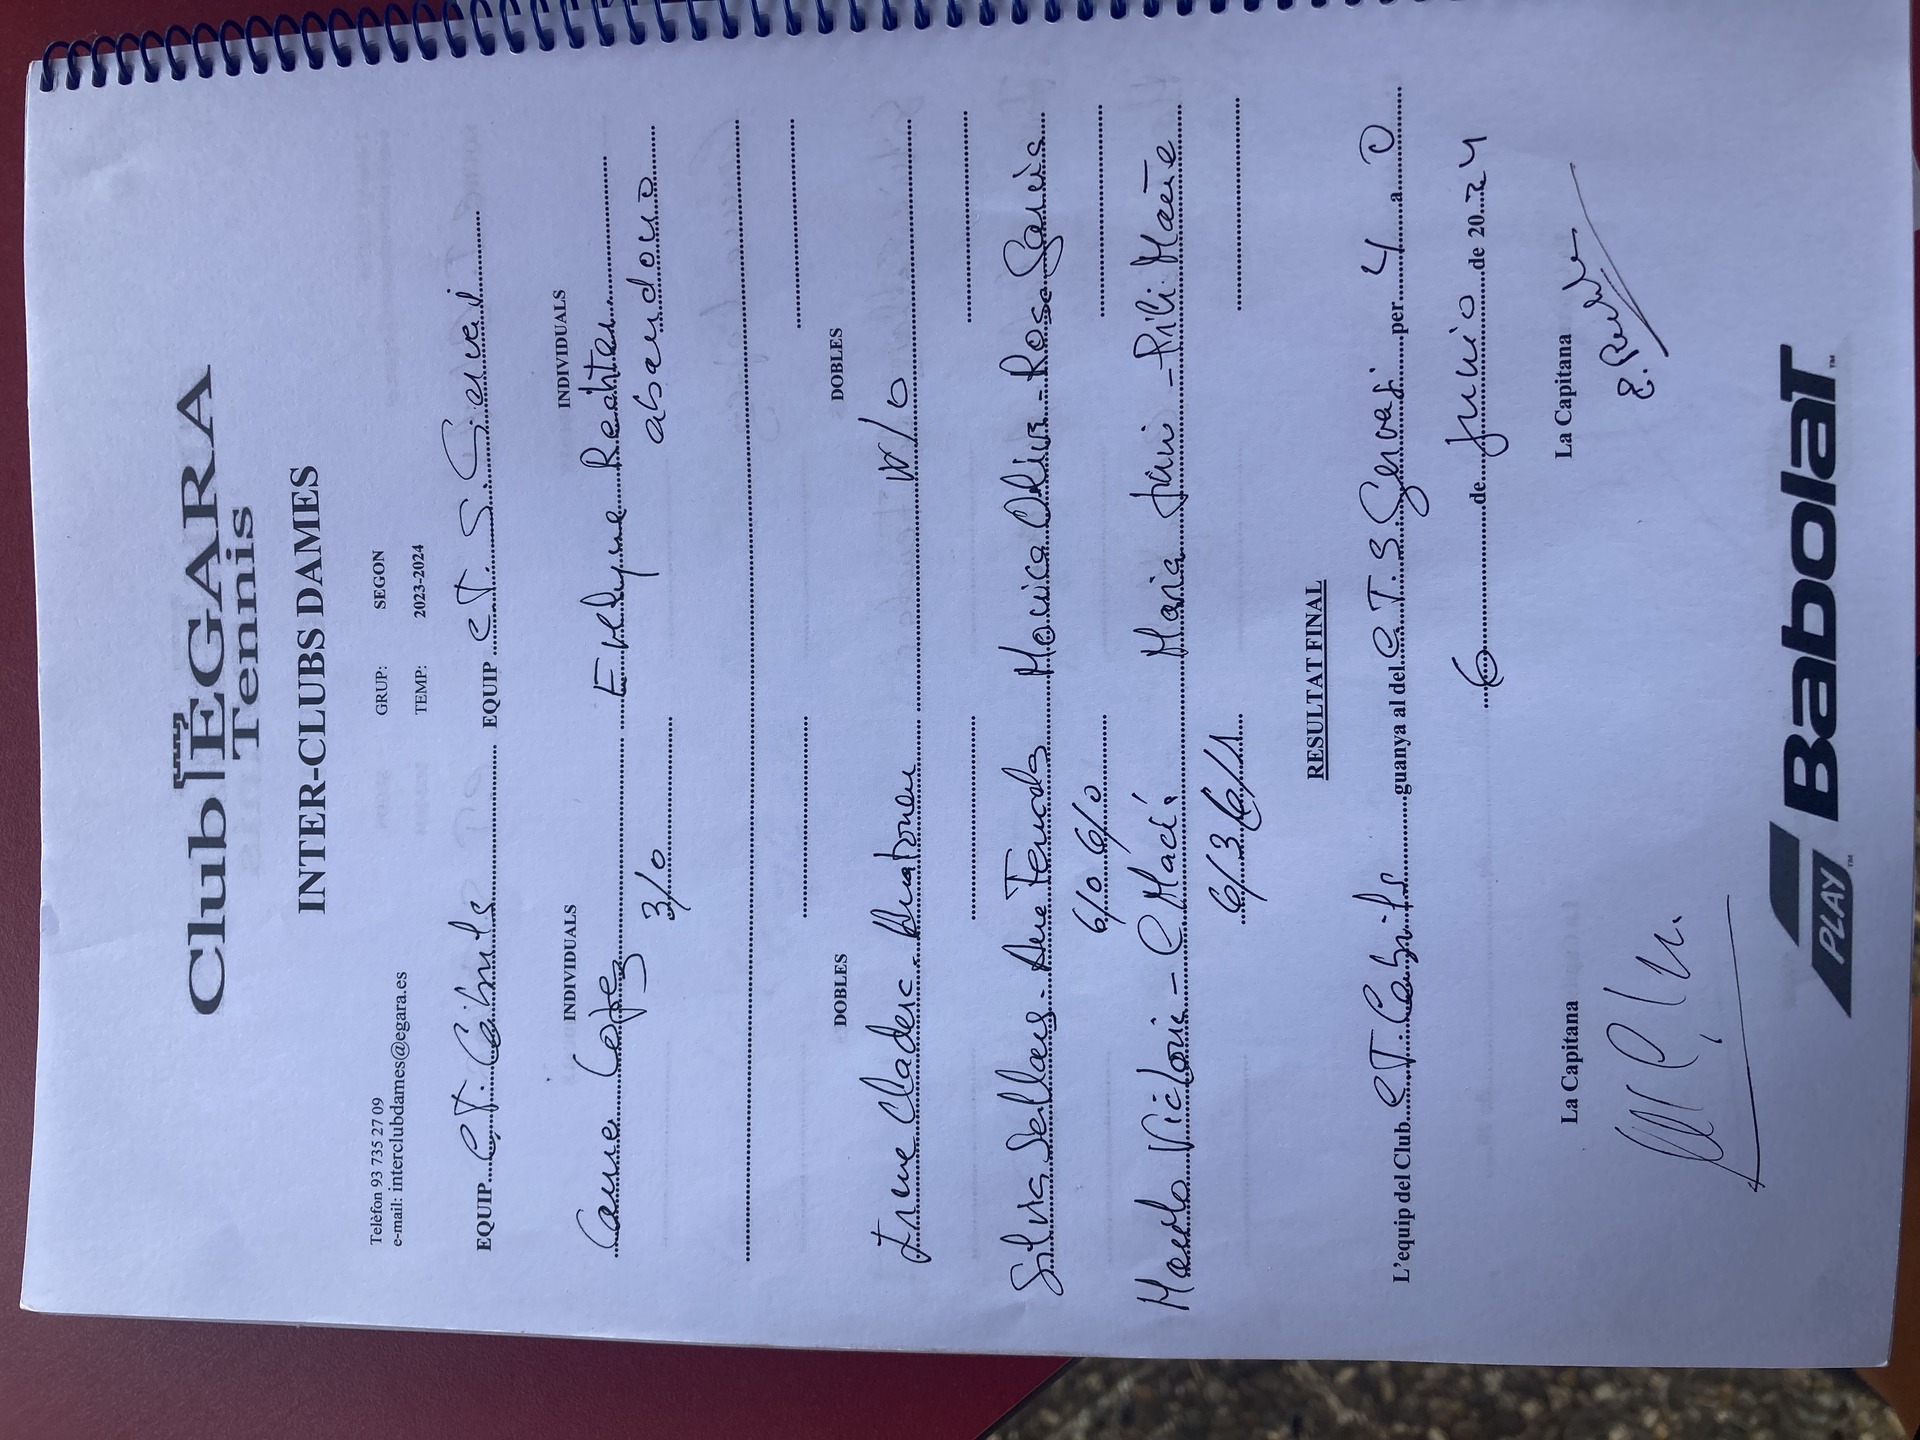 Club EGARA
Tennis
INTER-CLUBS DAMES
Telèfon 93 735 27 09 GRUP: SEGON
e-mail: interclubdames@egara.es TEMP: 2023-2024
EQUIP C.T. Cabrils EQUIP C.T. S. Gervasi
INDIVIDUALS INDIVIDUALS
Carme Evelyne Rechter
3/0 abandono
DOBLES DOBLES
Irene Cladera - W/O
Silvia Sellares - Ana Monica Oliva - Rosa
6/0 6/0
Victoria - C Macià Maria - Pili Mañe
6/3 6/1
RESULTAT FINAL
L'equip del Club C.T. Cabrils guanya al del C.T. S. Gervasi per 4 a 0
6 de Junio de 2024
La Capitana La Capitana
PLAY Babolat